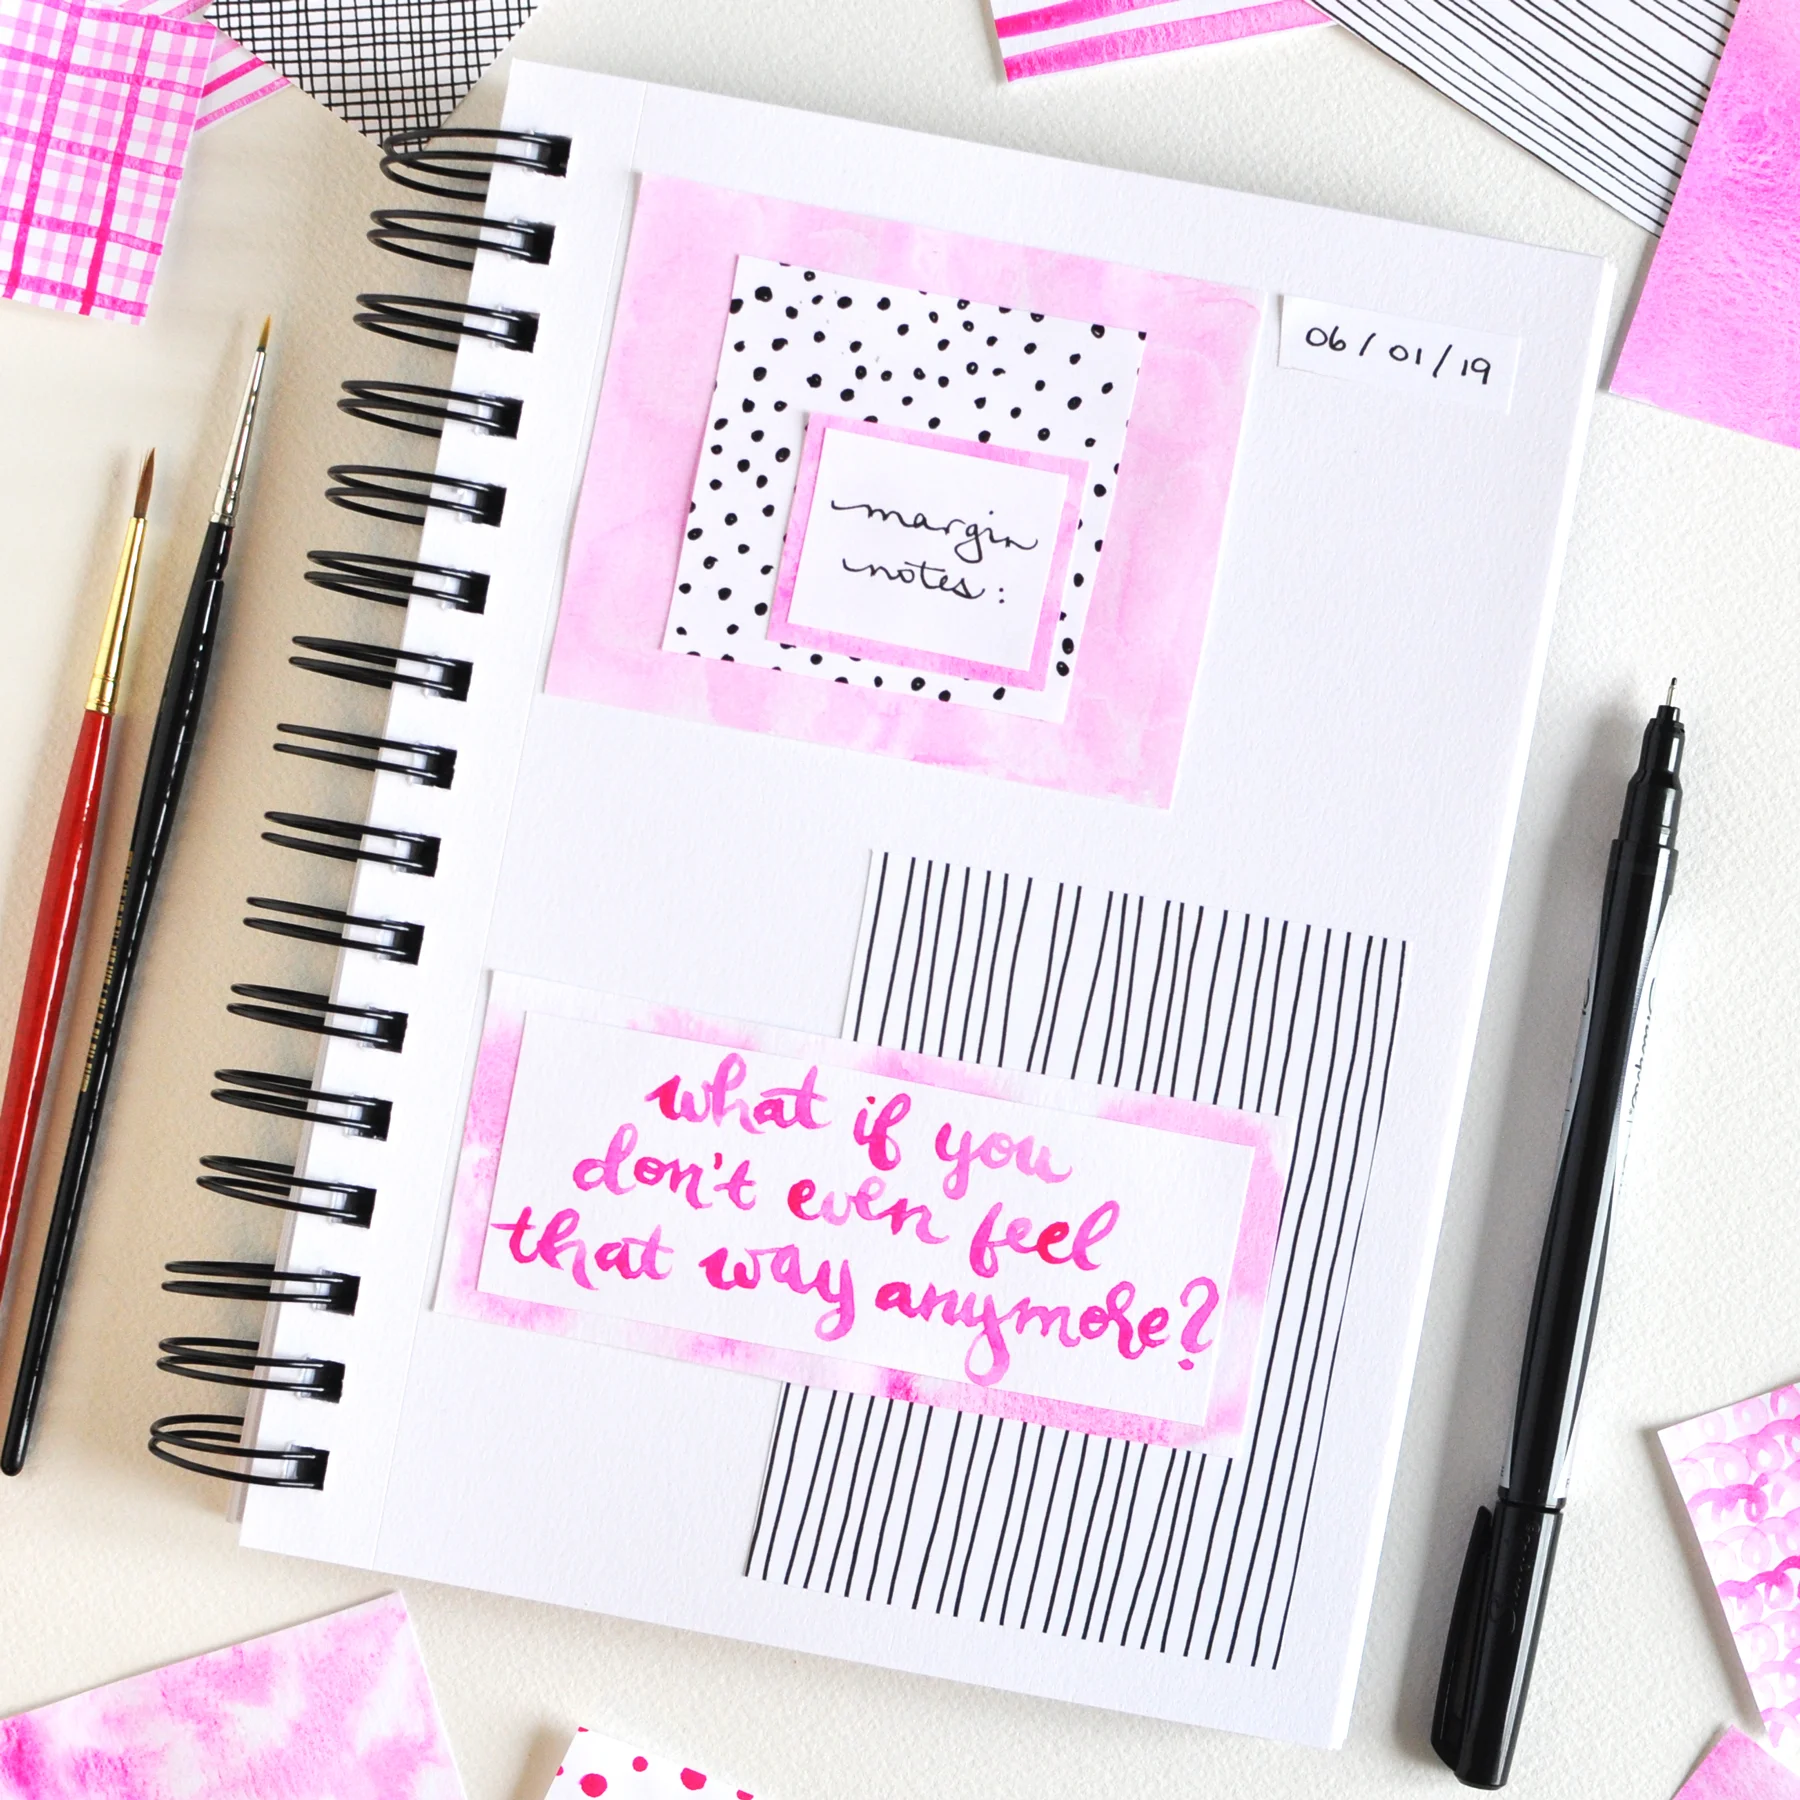 06/01/19
margin
notes:
what if you
don't even feel
that way anymore?